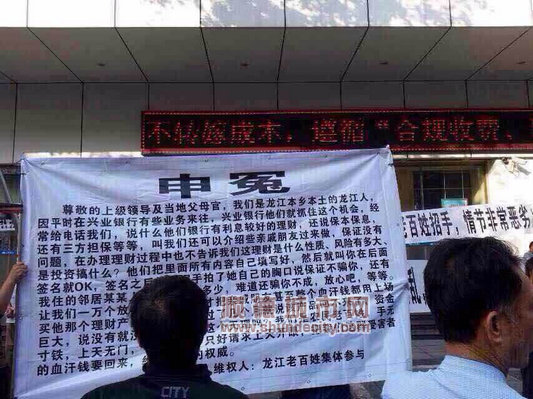 不转嫁成本，遵循“合规收费、
申冤
尊敬的上级领导及当地父母官，我们是龙江本乡本土的龙江人，
因平时在兴业银行有些业务来往，兴业银行他们就抓住这个机会，经
常给电话我们，说什么他们银行有利息较好的理财，还说保本保息，
有三方担保等等，叫我们还可以介绍些亲戚朋友过来做，保证没有
问题，在办理理财过程中也不告诉我们这理财是什么性质，风险有多大、
是投资搞什么？他们把里面所有内容自己填写好，然后就叫你在后面
签名就OK，签名之后
拍了她自己的胸口说保证不骗你，还有
我住的邻居某某
多少，难道还骗你不成，放心吧，等等
让我们一万个放
整个血汗钱都用上场
买他那个理财产
手无
巨大，说没有就没
受害者
寸铁，上天无门，
只好请求上
的血汗钱要回来，
的权威。
维权人：龙江老百姓集体参与
老百姓招手，情节非常恶劣
顺德城市网
www.shundecity.com
CITY